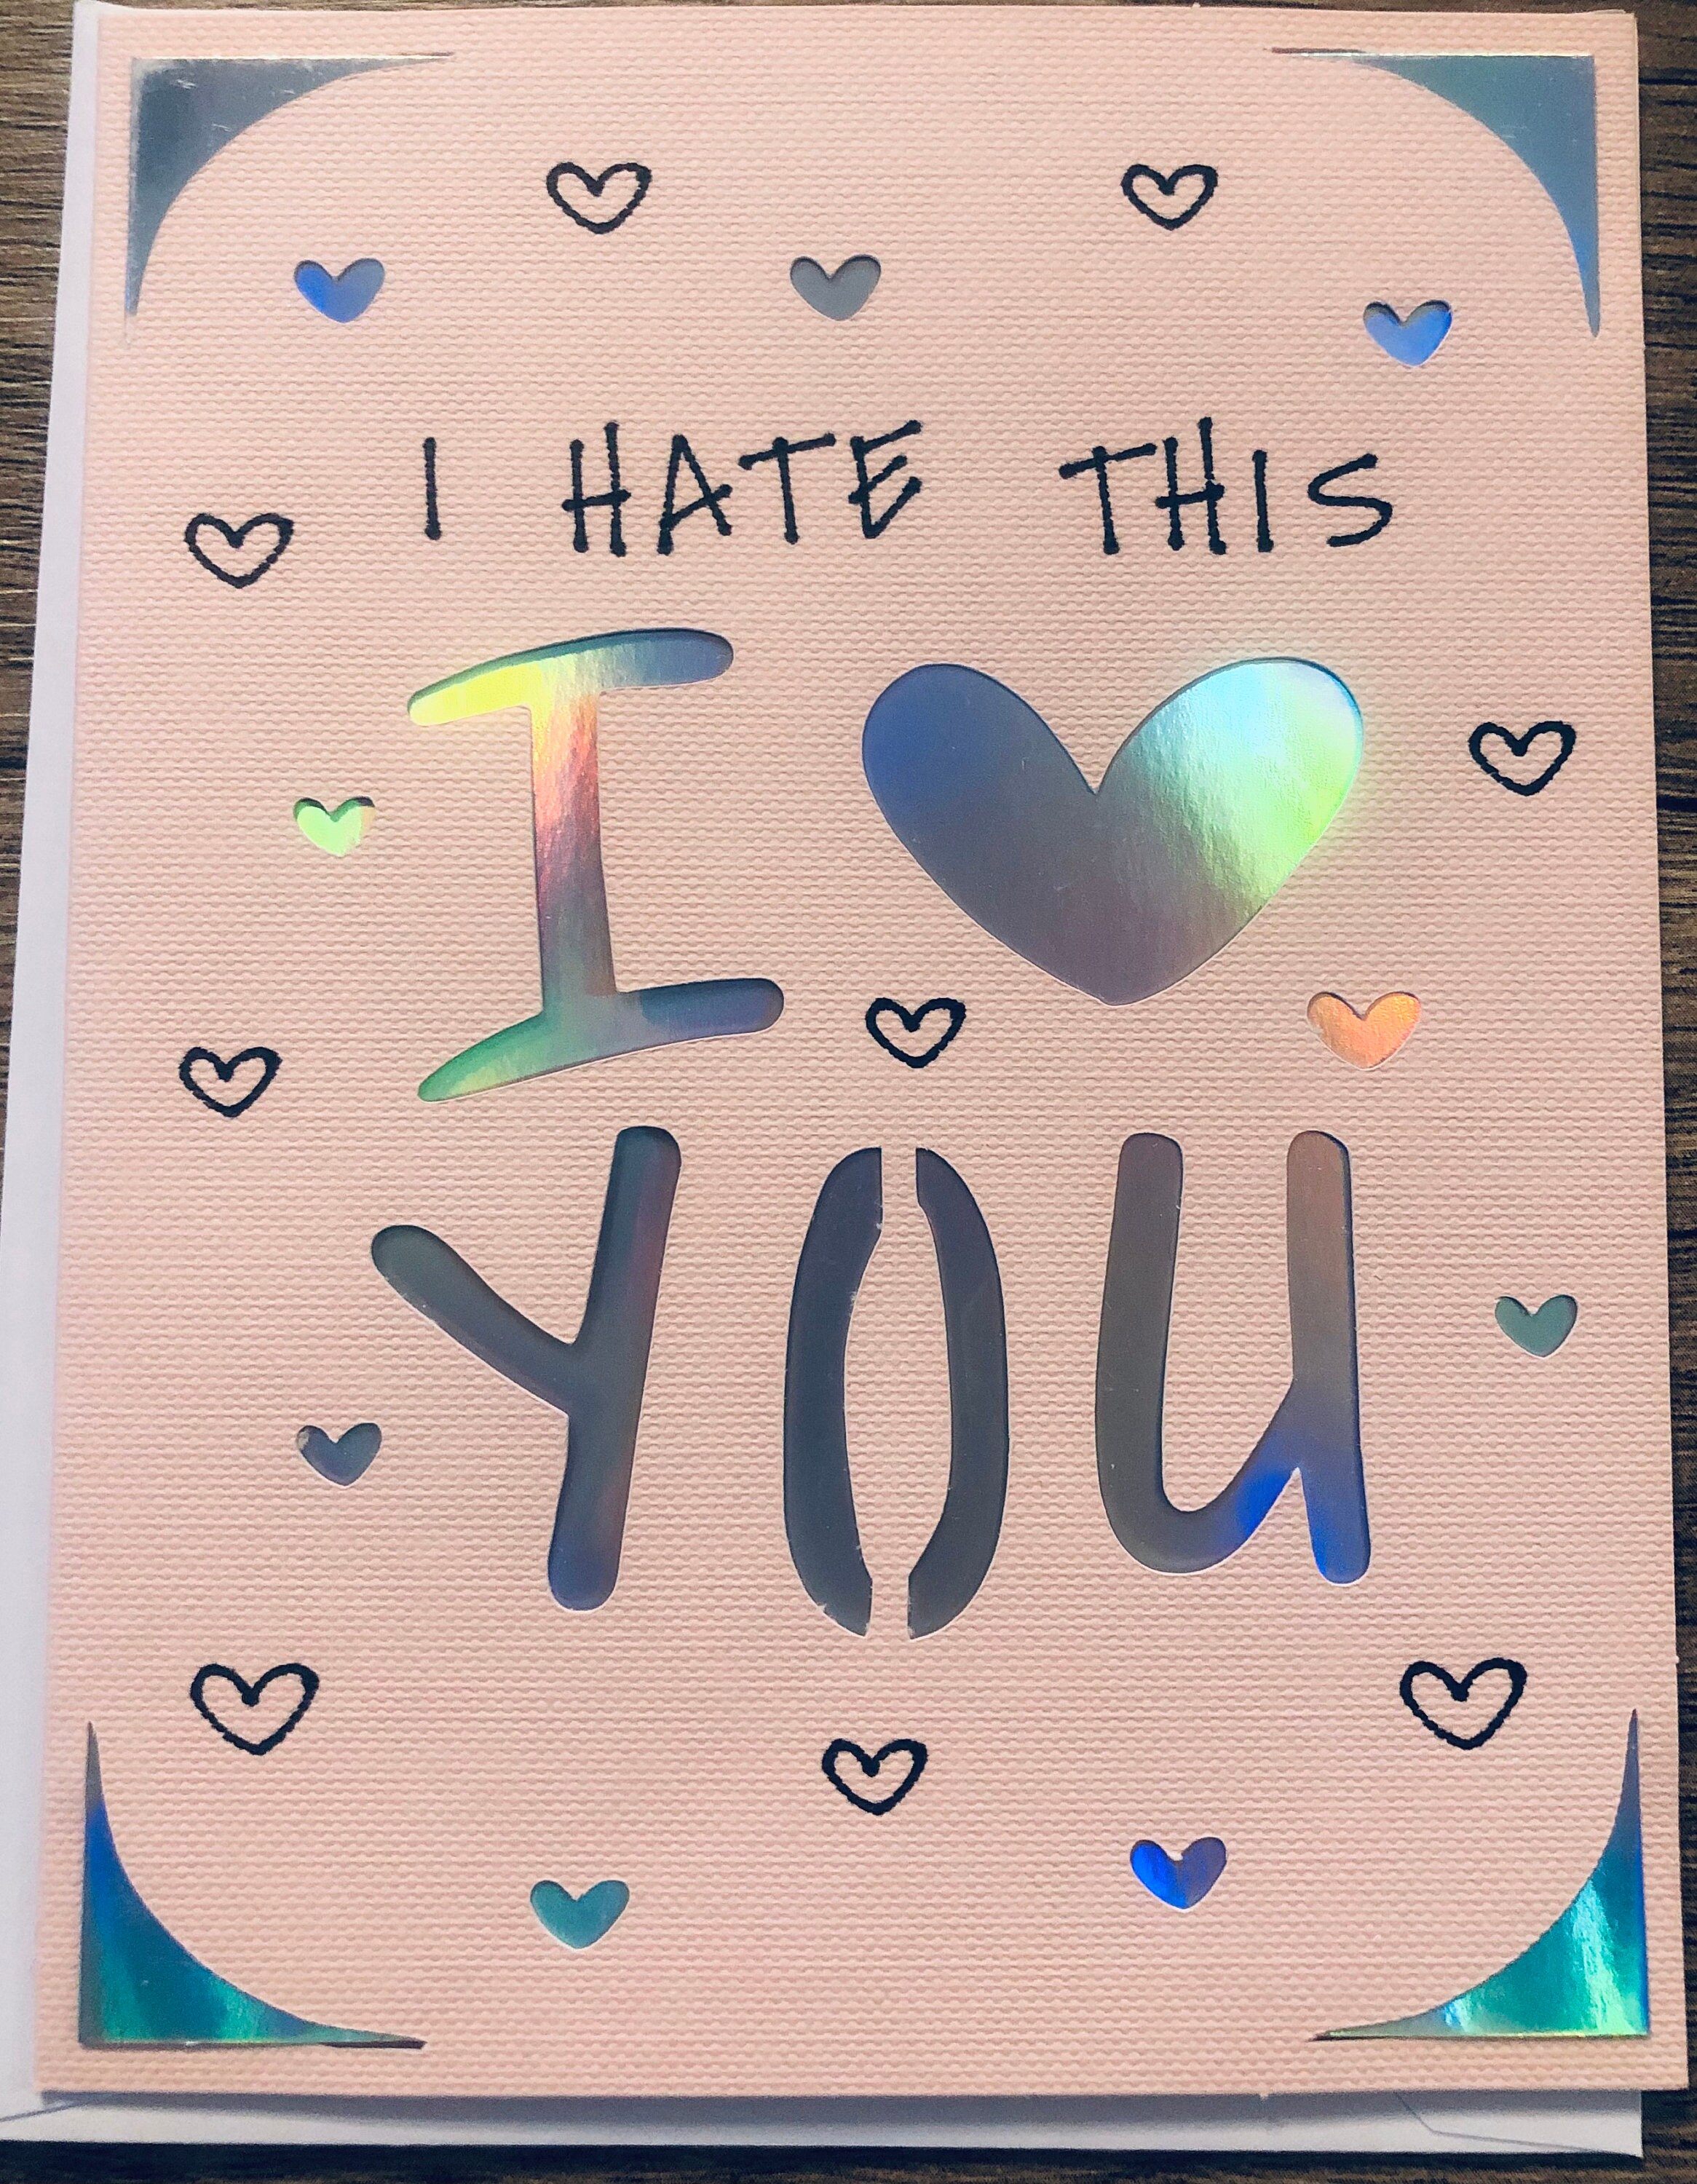 I HATE THIS
I ♥
YOU